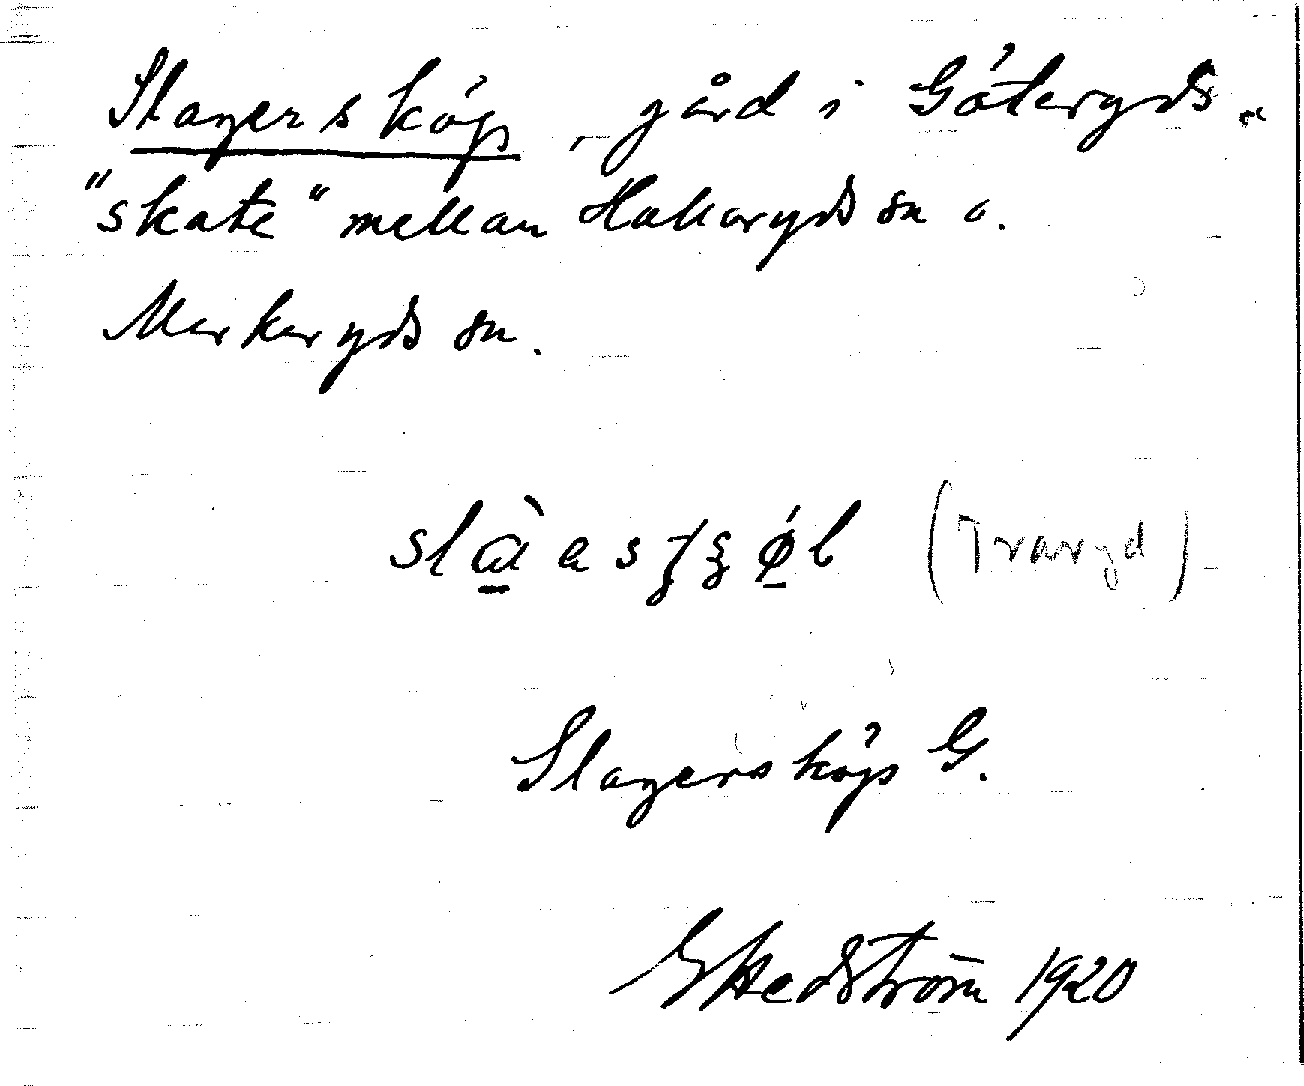 Slagersköp, gård i Göteryds-
"skate" mellan Hallaryds sn o.
Markaryds sn.
(Traryd)
Slagersköp G.
G Hedström 1920